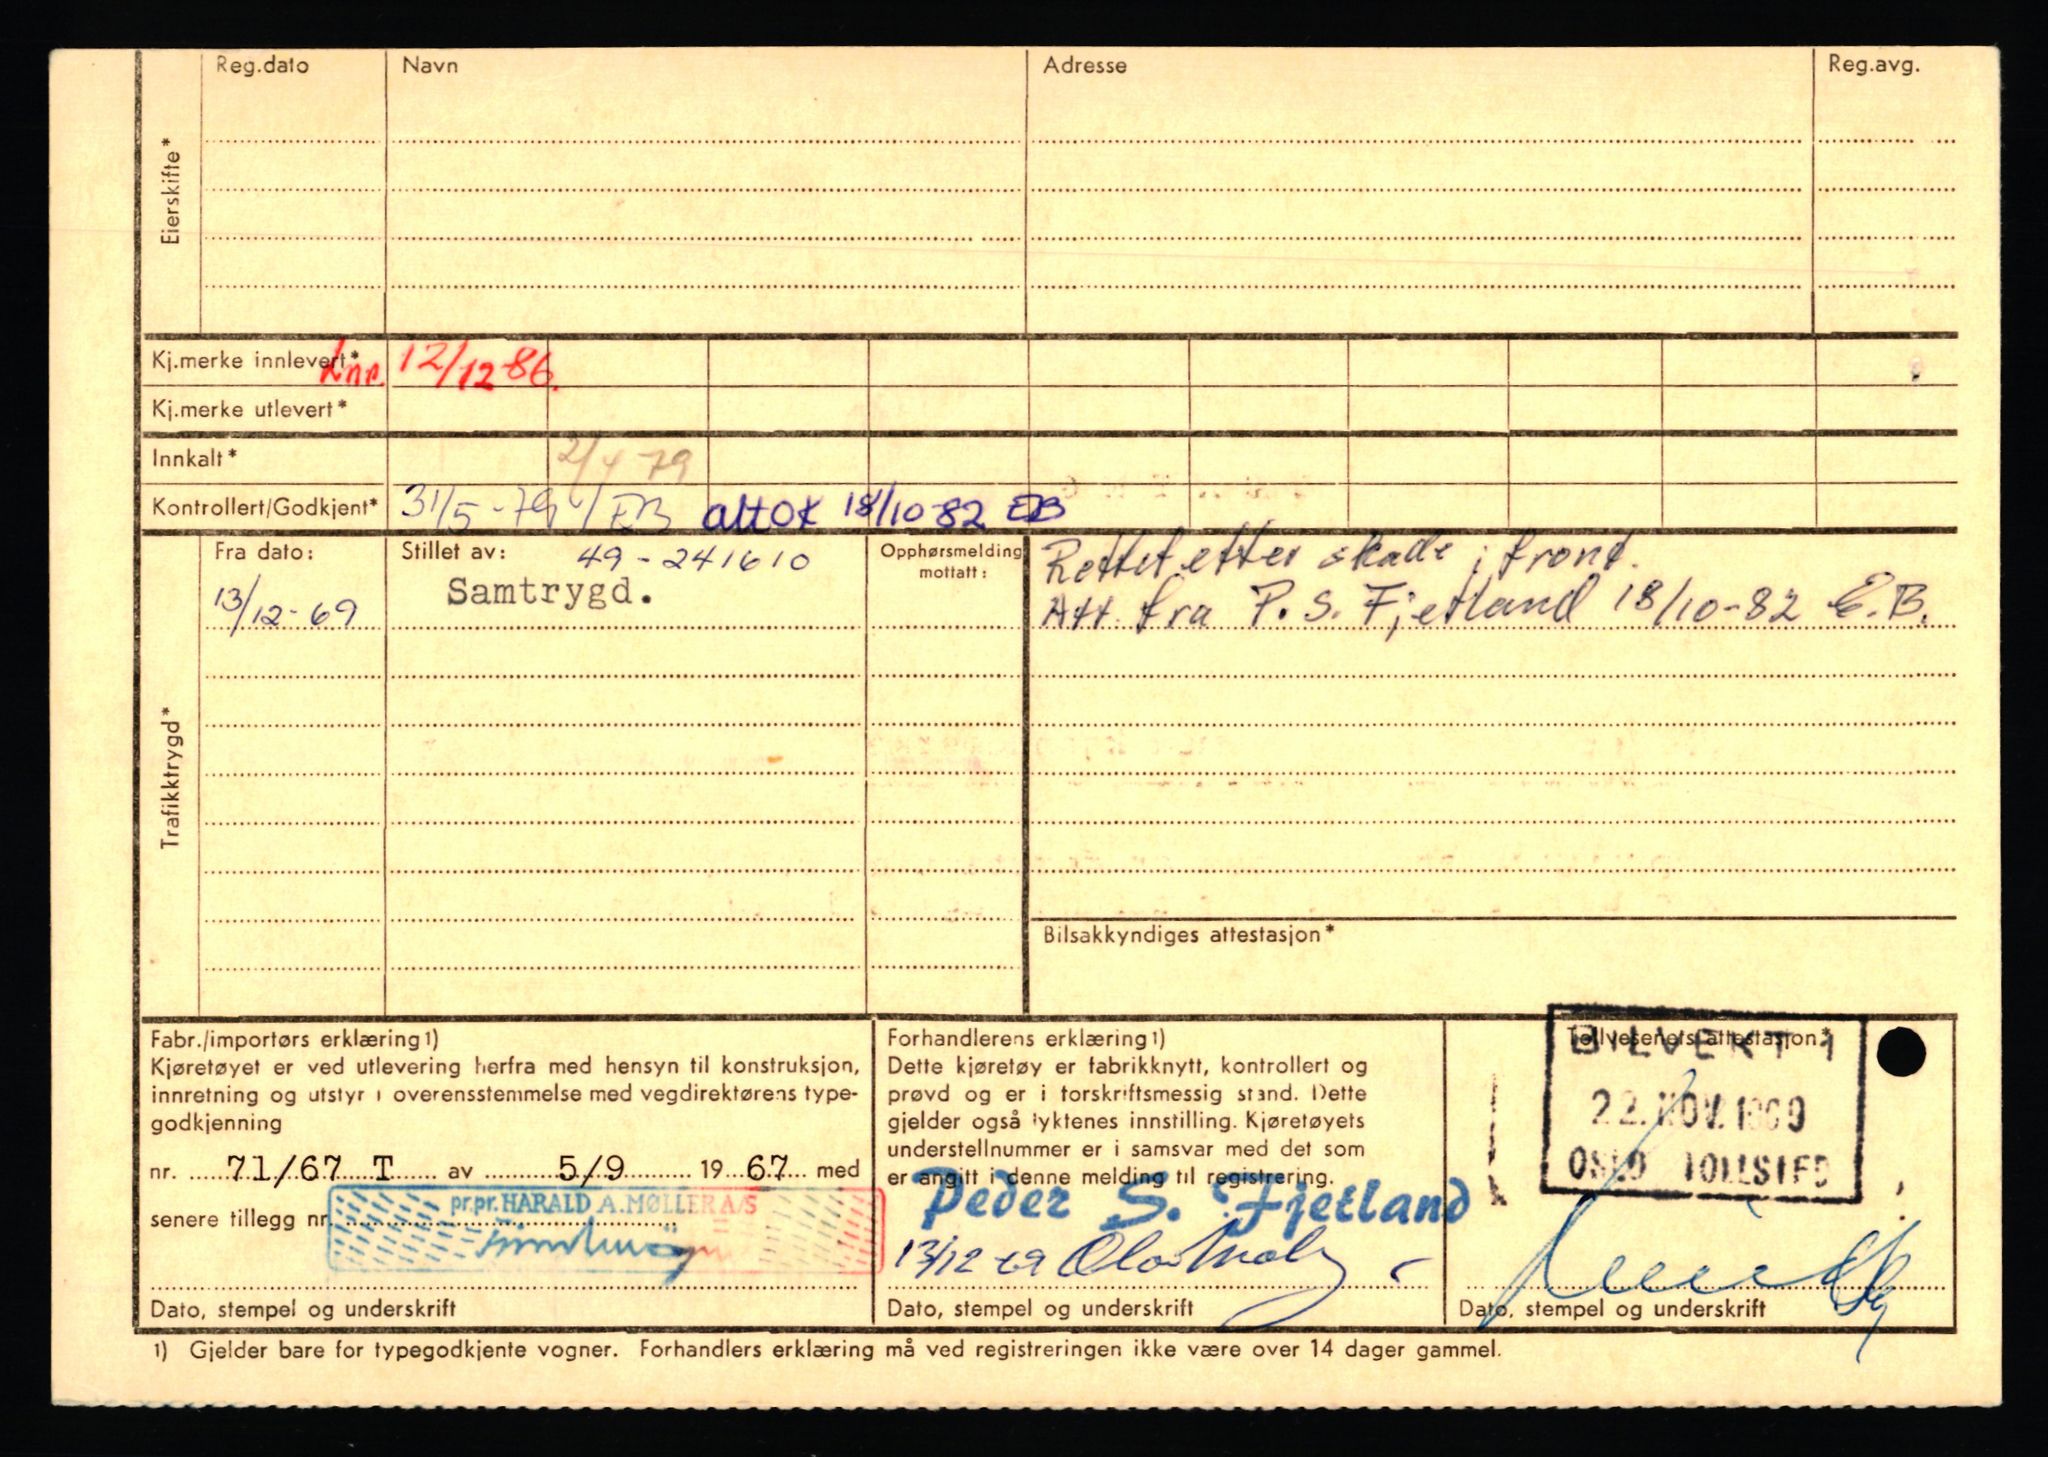 Reg.dato Navn Adresse Reg.avg.
Eierskifte*
Kj.merke innlevert* 12/12-86.
Kj.merke utlevert*
Innkalt* 2/4 79
Kontrollert/Godkjent* 31/5-79 EB alt OK 18/10-82 EB
Fra dato: Stillet av: 49-241610 Opphørsmelding mottatt:
Rettet etter skade i front.
13/12-69 Samtrygd.
Att. fra P. S. Fjetland 18/10-82 E.B.
Trafikktrygd*
Bilsakkyndiges attestasjon*
Fabr./importørs erklæring 1)
Kjøretøyet er ved utlevering herfra med hensyn til konstruksjon,
innretning og utstyr i overensstemmelse med vegdirektørens type-
godkjenning
nr. 71/67 T av 5/9 1967 med
senere tillegg nr.
pr.pr. HARALD A. MØLLER A/S
Dato, stempel og underskrift
Forhandlerens erklæring 1)
Dette kjøretøy er fabrikknytt, kontrollert og
prøvd og er i forskriftsmessig stand. Dette
gjelder også lyktenes innstilling. Kjøretøyets
understellnummer er i samsvar med det som
er angitt i denne melding til registrering.
Peder S. Fjetland
13/12-69
Dato, stempel og underskrift
Tollvesenets attestasjon*
BILVERKT 1
22. NOV. 1969
OSLO TOLLSTED
Dato, stempel og underskrift
1) Gjelder bare for typegodkjente vogner. Forhandlers erklæring må ved registreringen ikke være over 14 dager gammel.